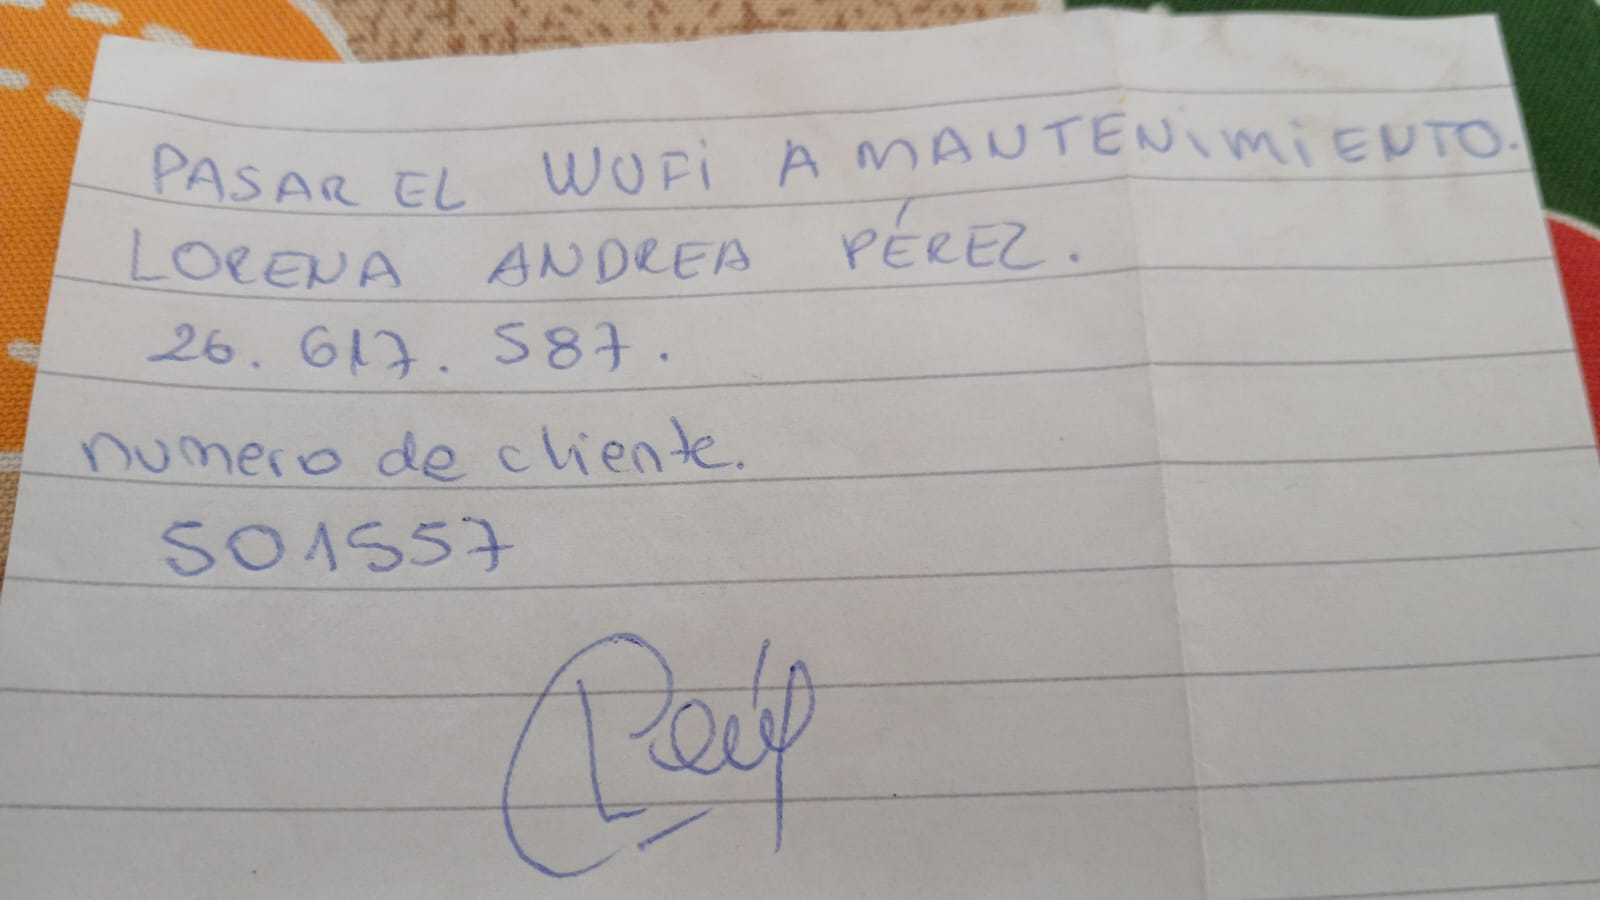 PASAR EL WUFi A MANTENiMiENTO.
LORENA ANDREA PÉREZ.
26.617.587.
numero de cliente.
501557